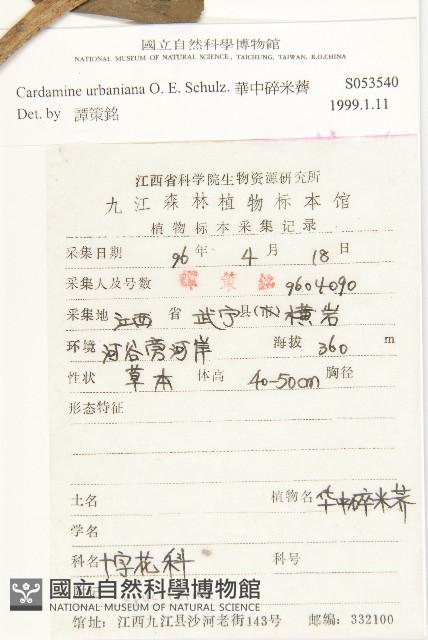 國立自然科學博物館
NATIONAL MUSEUM OF NATURAL SCIENCE, TAICHUNG, TAIWAN, R.O.CHINA
Cardamine urbaniana O. E. Schulz. 華中碎米薺 S053540
Det. by 譚策銘 1999.1.11
江西省科学院生物资源研究所
九江森林植物标本馆
植物标本采集记录
采集日期 96 年 4 月 18 日
采集人及号数 譚策銘 9604090
采集地 江西 省 武宁县(市)横岩
环境 河谷旁河岸 海拔 360 m
性状 草本 体高 40-50cm 胸径
形态特征
土名 植物名 华中碎米荠
学名
科名 十字花科 科号
國立自然科學博物館
NATIONAL MUSEUM OF NATURAL SCIENCE
馆址:江西九江县沙河老街143号 邮编:332100